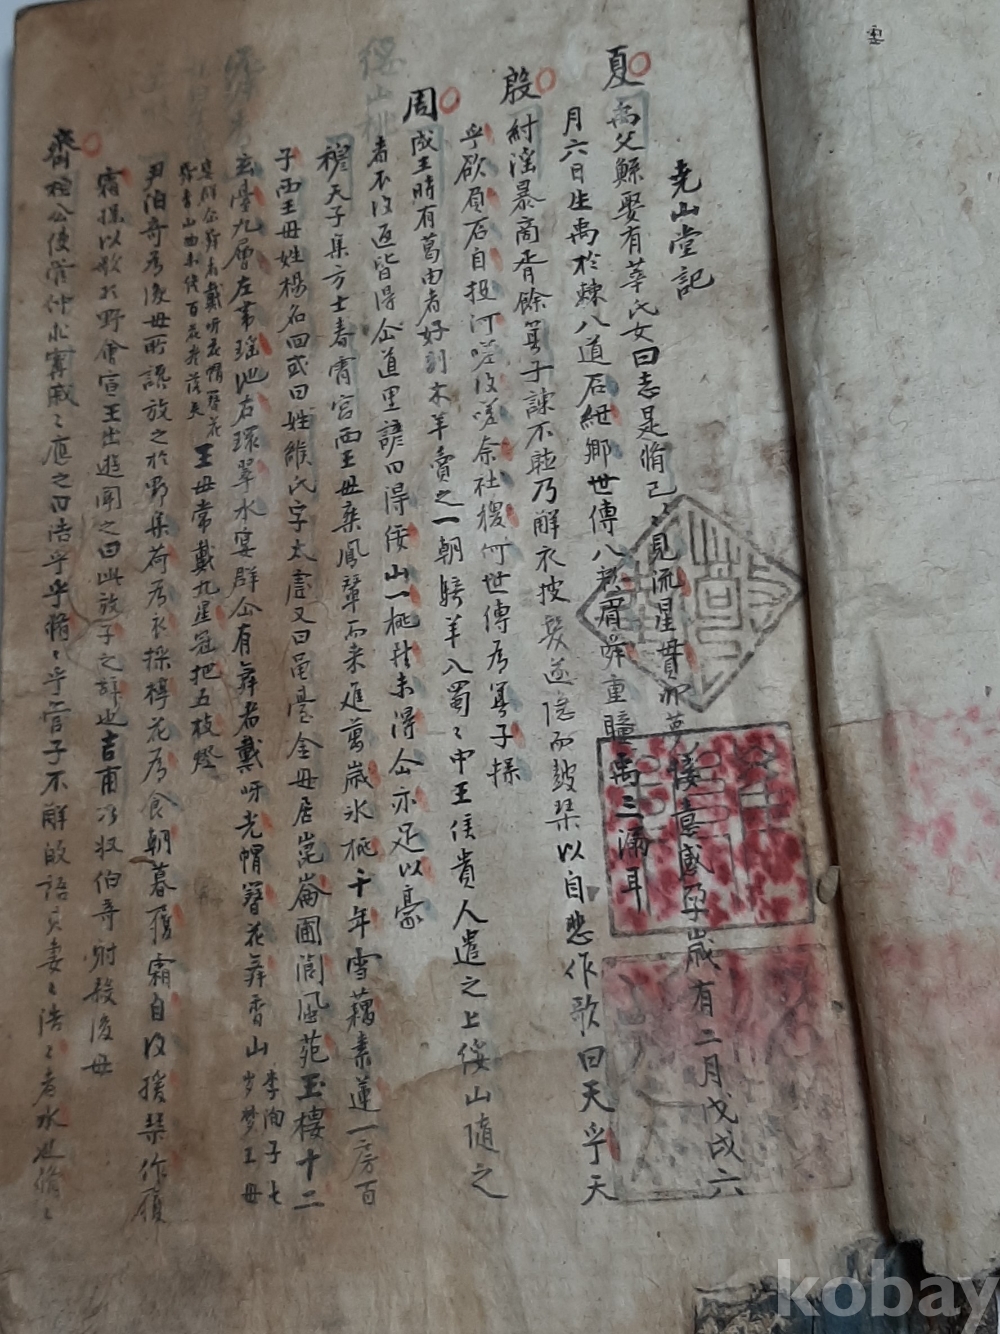 堯山堂記
夏 禹父鯀娶有莘氏女曰志是脩己見流星貫昴夢接意感孕歲有二月戊戌六
月六日生禹於 八道石紐鄉世傳八彩眉舜重瞳禹三漏耳
殷 紂淫暴商胥餘箕子諫不聽乃解衣披髮遂隱而鼓琴以自悲作歌曰天乎天
乎欲負石自投河嗟復嗟奈社稷何世傳為箕子操
周 成王時有葛由者好刻木羊賣之一朝騎羊入蜀〻中王侯貴人遣之上綏山隨之
者不復返皆得仚道里諺曰得綏山一桃 未得仚亦足以豪
穆天子集方士春霄宮西王母乘鳳輦而來進萬歲氷桃千年雪藕素蓮一房百
子西王母姓楊名回或曰姓緱氏字太虛又曰龜臺金母居崑崙圃閬風苑玉樓十二
玄臺九層左帶瑤池右環翠水宴群仚有舞者戴呀光帽簪花舞香山
李 子七
夕夢王母
宴群仚舞者戴呀光帽簪花
舞香山曲未終百花 落矣
王母常戴九星冠把五枝燈
尹伯奇為後母所譖放之於野集荷為衣採楟花為食朝暮履霜自 援琴作履
霜操以歌於野會宣王出遊聞之曰此放子之辭也吉甫乃收伯奇射殺後母
齊 桓公使管仲求甯戚〻應之曰浩乎乎脩〻乎管子不解 語 妻〻浩〻者水也脩〻
kobay